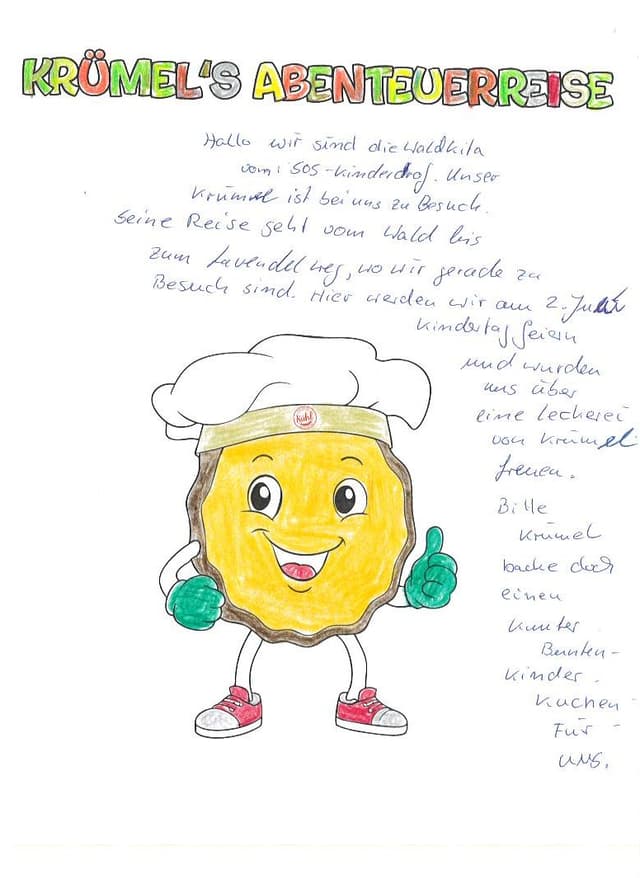 KRÜMEL'S ABENTEUERREISE
Hallo wir sind die Waldkita
vom: SOS-Kinderdrof. Unser
Krümel ist bei uns zu Besuch.
Seine Reise geht vom Wald bis
zum Lavendel weg, wo wir gerade zu
Besuch sind. Hier werden wir am 2. Juni
Kindertag feiern
und wurden
uns über
eine leckerei
von Krümel
freuen.
Bitte
Krümel
backe doch
einen
Kunter
Bunten-
Kinder.
Kuchen-
Für-
uns.
Kuhl